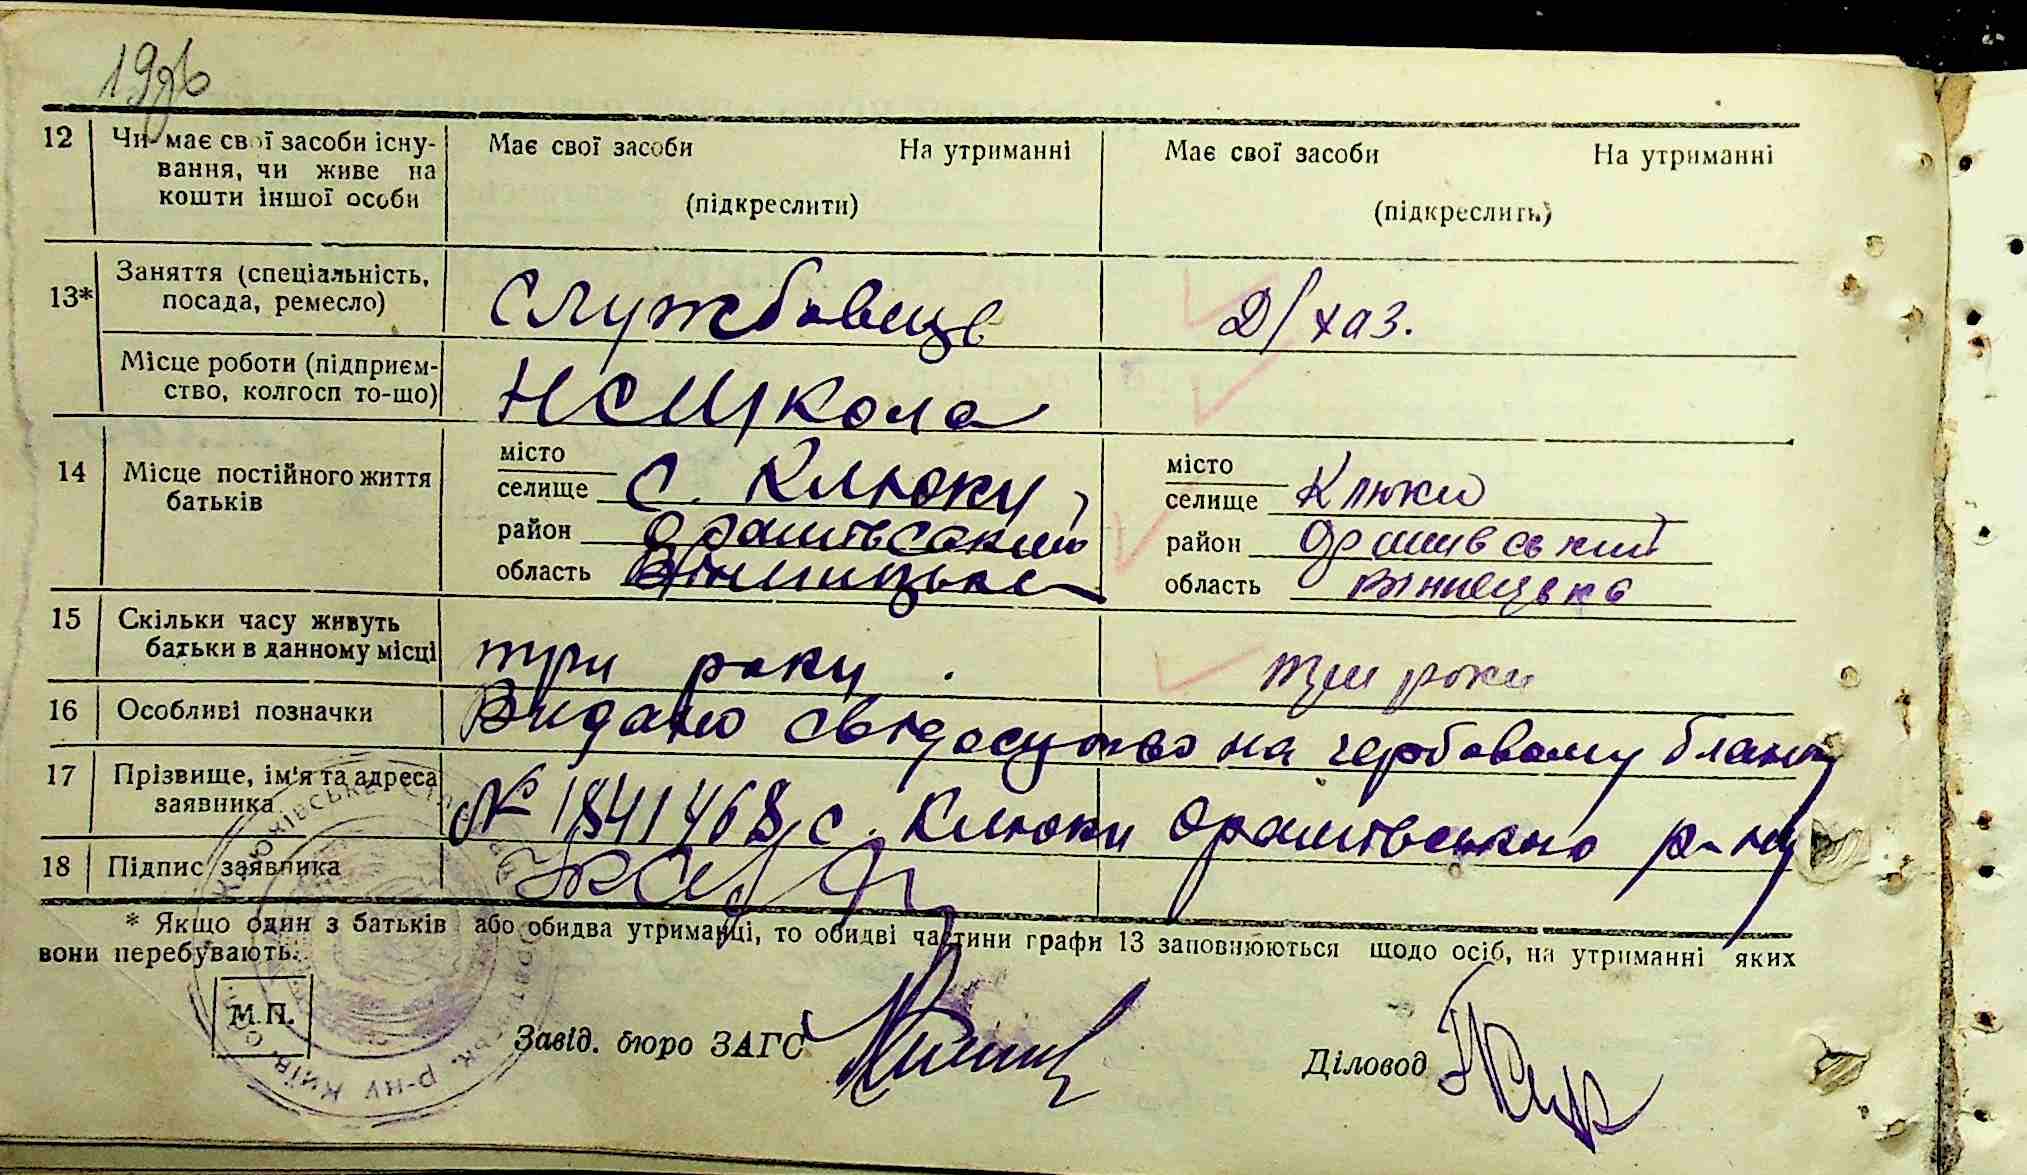 12 Чи має свої засоби існу- Має свої засоби На утриманні Має свої засоби На утриманні
вання, чи живе на
кошти іншої особи (підкреслити) (підкреслить)
13* Заняття (спеціальність,
посада, ремесло) службовець Д/хаз.
Місце роботи (підприєм-
ство, колгосп то-що) НСШкола
14 Місце постійного життя
батьків
місто місто
селище с. Клюки, селище Клюки
район Оратівський район Оратівський
область Вінницька область Вінницька
15 Скільки часу живуть
батьки в данному місці три роки. три роки
16 Особливі позначки Видано свідоцтво на гербовому бланку
17 Прізвище, ім'я та адреса
заявника № 1841468, с. Клюки Оратівського р-ну
18 Підпис заявника
* Якщо один з батьків або обидва утриманці, то обидві частини графи 13 заповнюються щодо осіб, на утриманні яких
вони перебувають.
М.П.
Завід. бюро ЗАГС Діловод